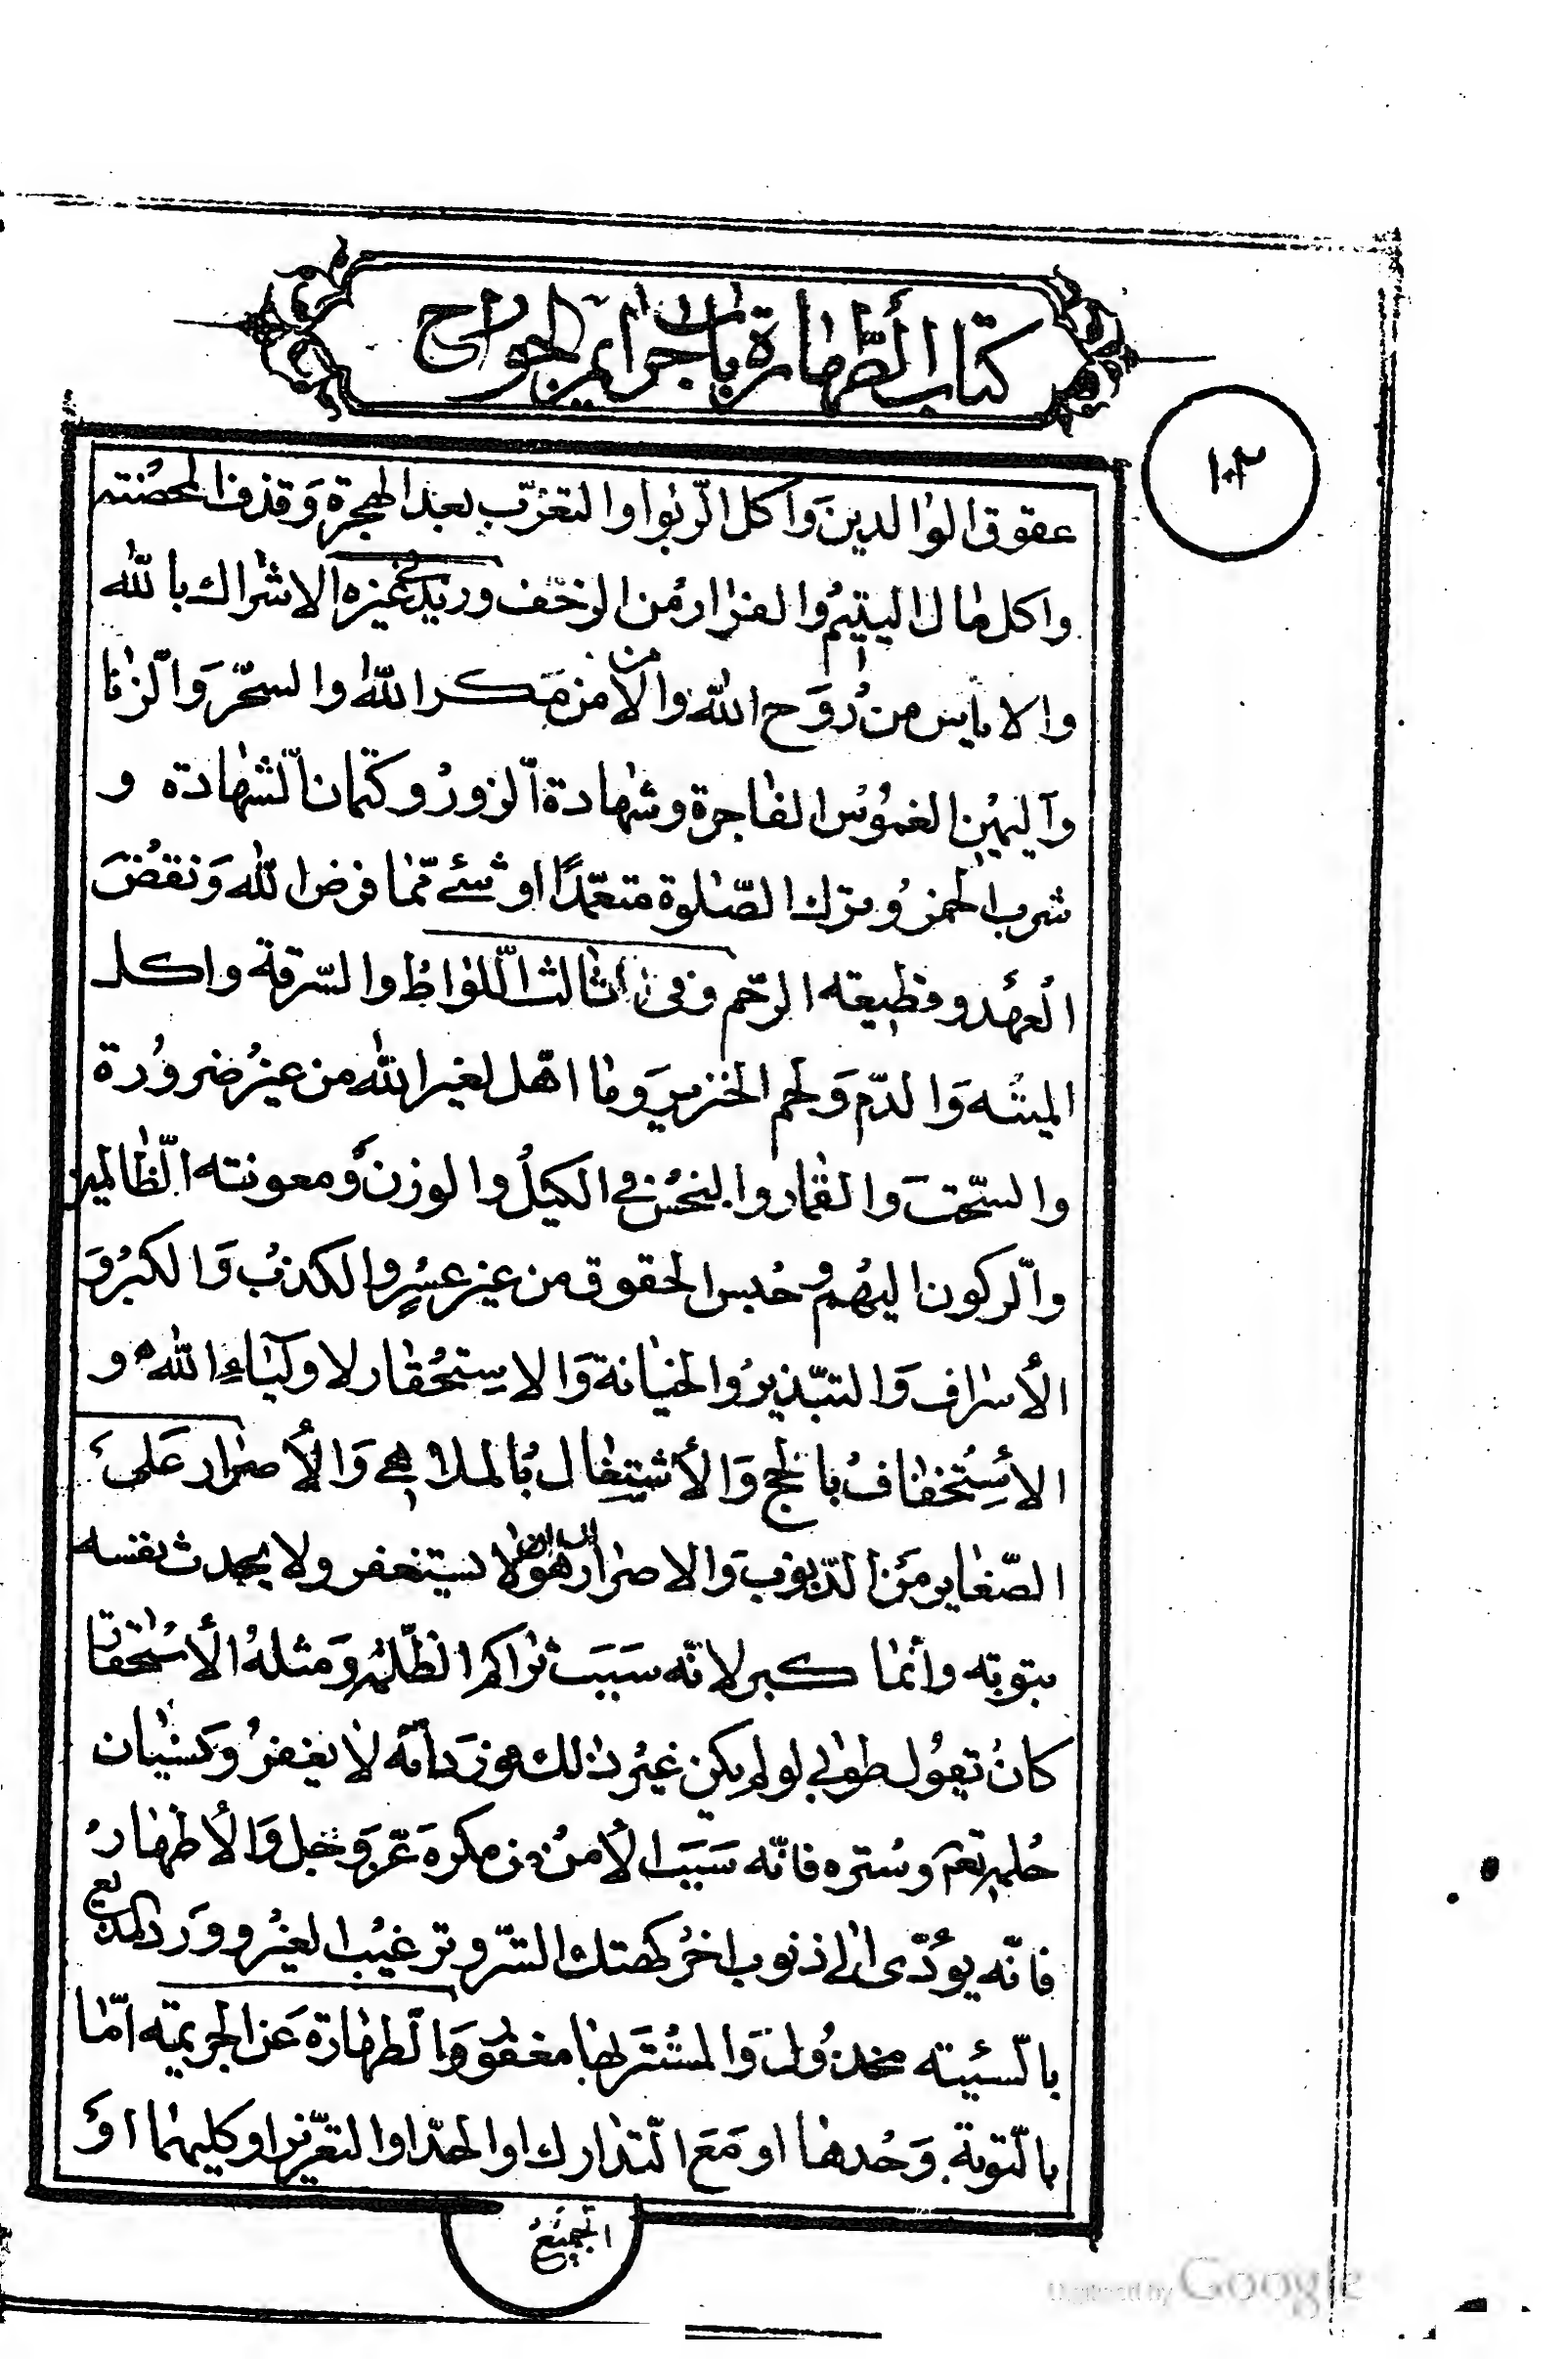 كتاب الطهارة باب جرايم الجوارح
١٠٢
عقوق الوالدين واكل الربوا والتعرّب بعد الهجرة وقذف المحصنة
واكل مال اليتيم والفرار من الزحف وزيد في غيره الاشراك بالله
والاياس من رَوح الله والأمن من مكر الله والسحر والزنا
واليمين الغموس الفاجرة وشهادة الزور وكتمان الشهادة و
شرب الخمر وترك الصّلوة متعمّدًا او شئ ممّا فرض الله ونقض
العهد وقطيعة الرحم وفى ثالث اللواط والسّرقة واكل
الميتة والدّم ولحم الخنزير وما اهّل لغير الله من غير ضرورة
والسّحت والقمار والبخس في الكيل والوزن ومعونة الظالمين
والركون اليهم وحبس الحقوق من غير عسرٍ والكذب والكبر و
الأسراف والتبّذير والخيانة والاستحقار لاولياء الله و
الأستخفاف بالحج والأشتغال بالملاهي والأصرار على
الصّغاير من الذنوب والاصرار هو ان لا يستغفر ولا يحدث نفسه
بتوبة وأنما كبر لانّه سبب تراكم الظّلمة ومثله الأستحقار
كان تقول طوبى لو لم يكن غير ذلك فورد انّه لا يغفر ونسيان
حلمه تعم وستره فانّه سبب الأمن من مكره عزّ وجل والأظهار
فانّه يؤدّى الى ذنوب اخر كهتك السّر وترغيب الغير وورد المذيع
بالسيئة مخذول والمستتر بها مغفور والطهارة عن الجريمة امّا
بالتوبة وحدها او مع التدارك او الحدّ او التعزير او كليهما او
الجميع
Digitized by Google